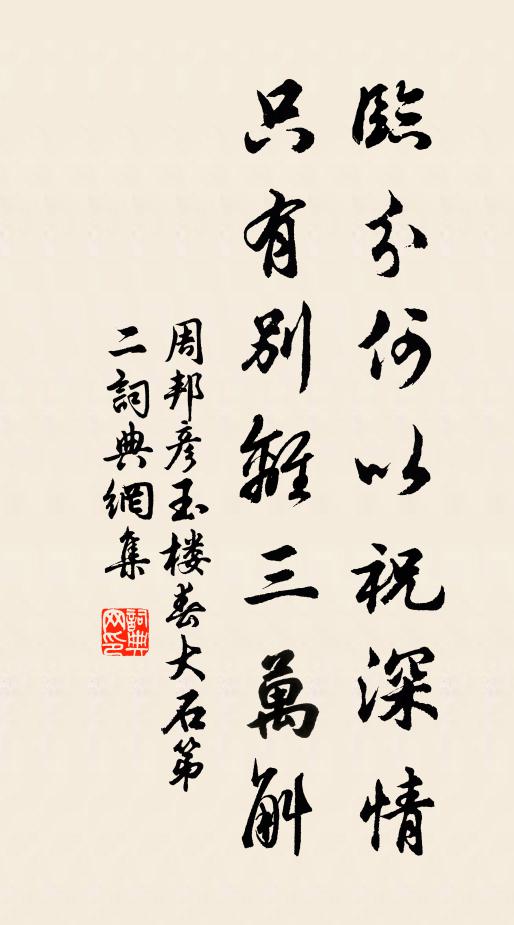 臨分何以祝深情
只有別離三萬斛
周邦彥玉楼春大石第
二詞典網集
詞典
网印